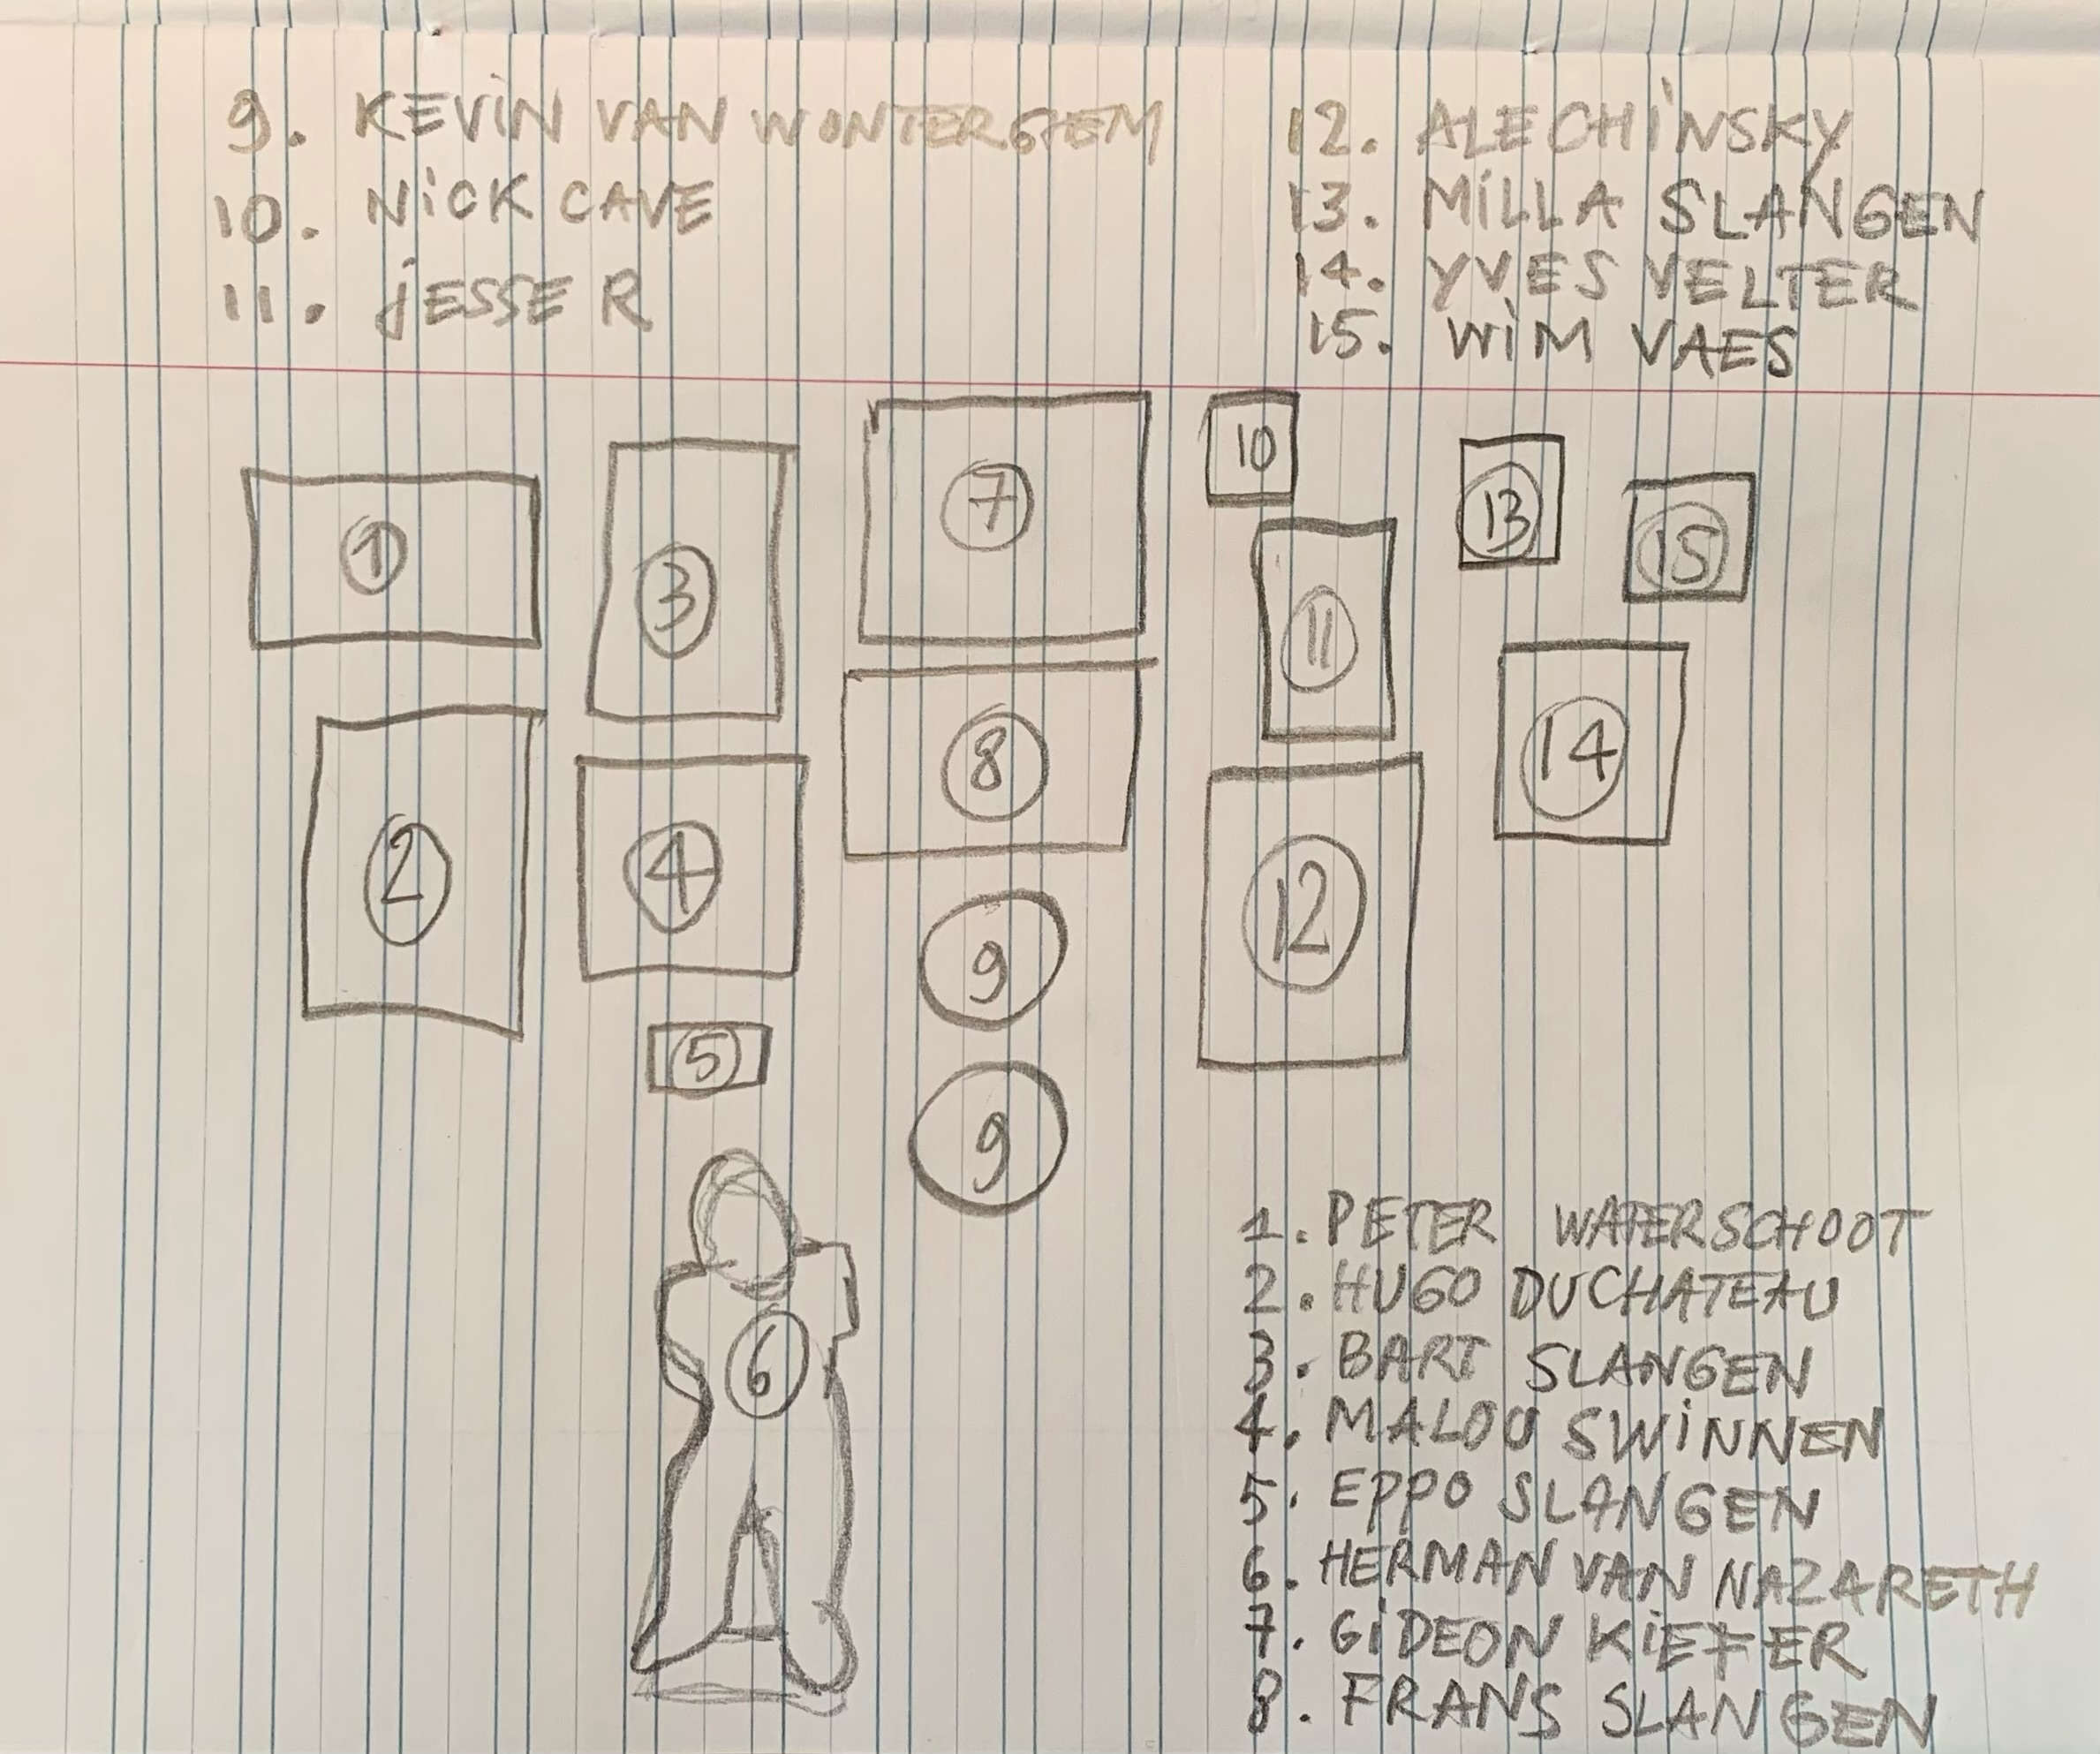 9. KEVIN VAN WONTERGHEM
10. NICK CAVE
11. JESSE R
12. ALECHINSKY
13. MILLA SLANGEN
14. YVES VELTER
15. WIM VAES
1
3
7
10
13
15
11
2
4
8
14
12
9
5
9
6
1. PETER WATERSCHOOT
2. HUGO DUCHATEAU
3. BART SLANGEN
4. MALOU SWINNEN
5. EPPO SLANGEN
6. HERMAN VAN NAZARETH
7. GIDEON KIEFER
8. FRANS SLANGEN